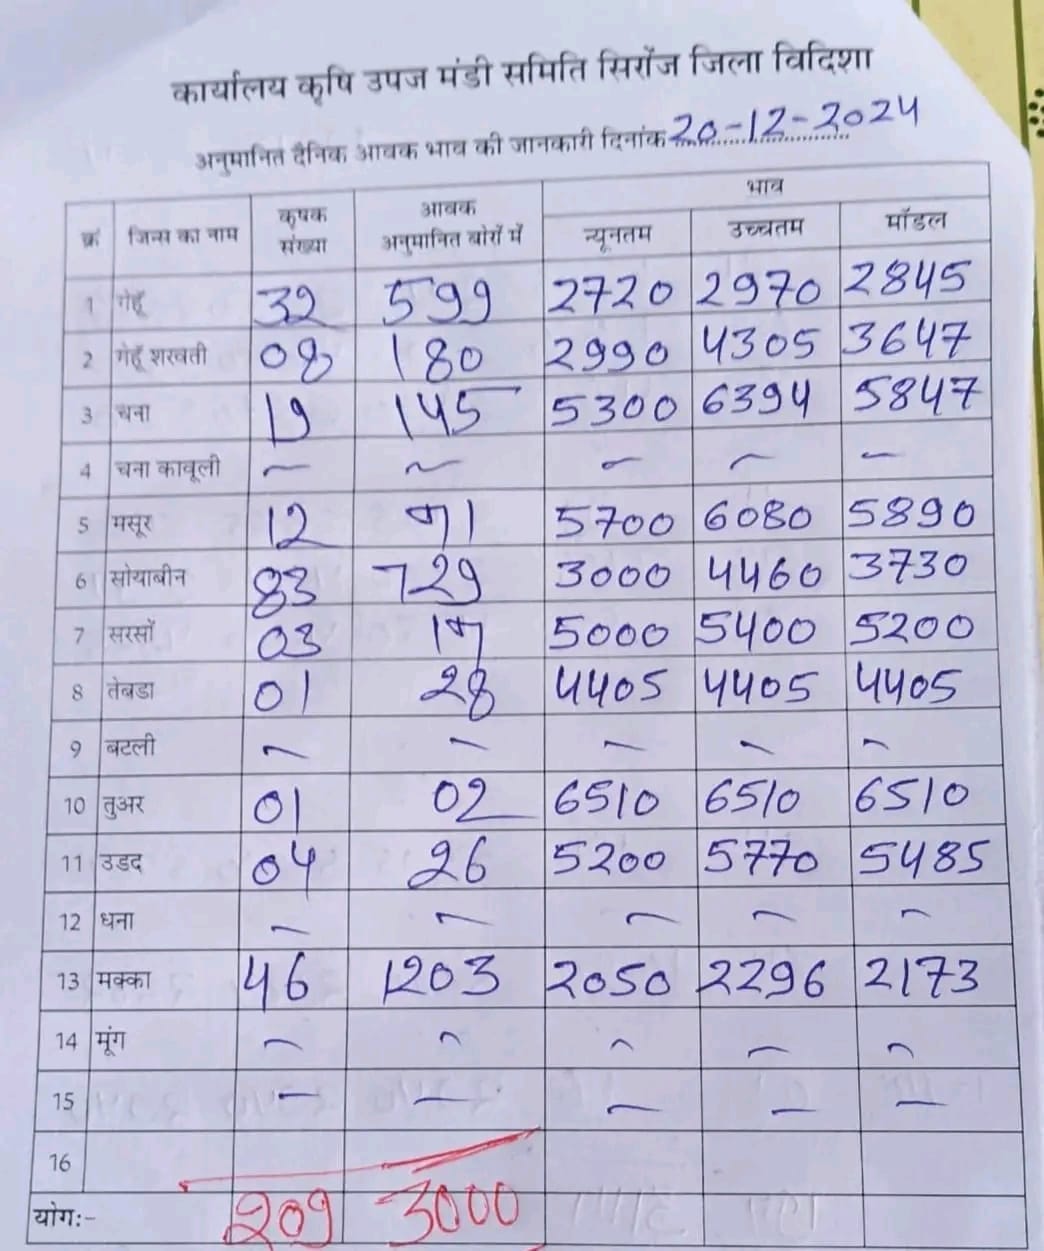 कार्यालय कृषि उपज मंडी समिति सिरोंज जिला विदिशा
अनुमानित दैनिक आवक भाव की जानकारी दिनांक 20-12-2024
क्रं जिन्स का नाम कृषक संख्या आवक अनुमानित बोरों में भाव
न्यूनतम उच्चतम मॉडल
1 गेहूँ 32 599 2720 2970 2845
2 गेहूँ शरबती 08 180 2990 4305 3647
3 चना 19 145 5300 6394 5847
4 चना काबूली – – – – –
5 मसूर 12 71 5700 6080 5890
6 सोयाबीन 83 729 3000 4460 3730
7 सरसों 03 17 5000 5400 5200
8 तेबडा 01 28 4405 4405 4405
9 बटली – – – – –
10 तुअर 01 02 6510 6510 6510
11 उडद 04 26 5200 5770 5485
12 धना – – – – –
13 मक्का 46 1203 2050 2296 2173
14 मूंग – – – – –
15 – – – – –
16
योगः- 209 3000